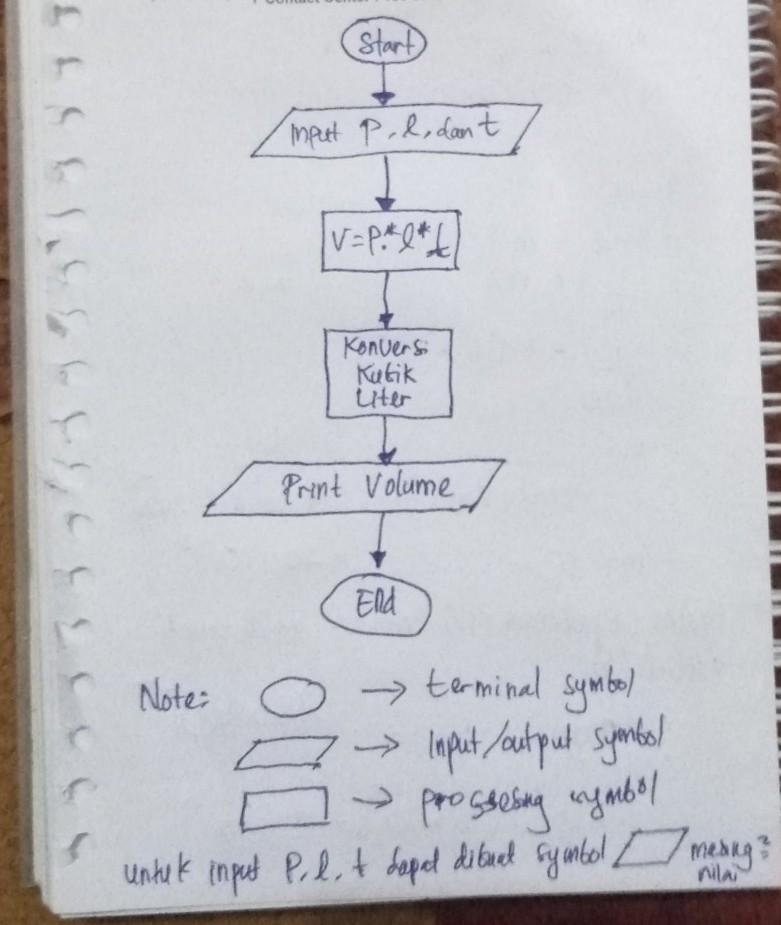 Start
Input P, l, dan t
V=P*l*t
Konversi
Kubik
Liter
Print Volume
End
Note: → terminal symbol
→ Input/output symbol
→ symbol
untuk input P, l, t dapat dibuat symbol masing²
nilai